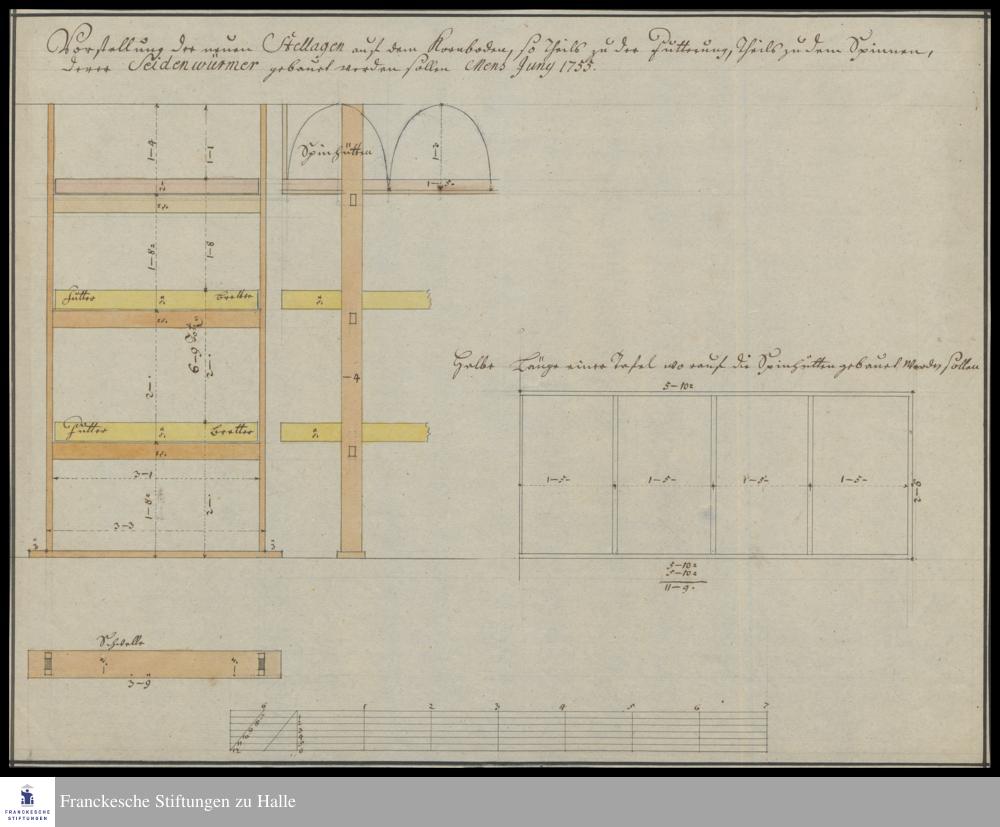 Vorstellung der neuen Stellagen auf dem Kornboden, so theils zu der Futterung, theils zu dem Spinnen,
derer Seidenwürmer gebauet werden sollen Mens Juny 1755.
1-4
1-1
Spinhütten
1-2
1-5-
1-8"
1-8
Futter Bretter
3"
3"
6-9
2-"
2-"
-4
Halbe Länge einer Tafel worauf die Spinhütten gebauet werden sollen
5-10"
Futter Bretter
3"
3"
3-1
1-8"
2-"
3-3
3"
3"
1-5- 1-5- 1-5- 1-5-
2-8
5-10"
5-10"
11-9"
Schwelle
3-9
1 2 3 4 5 6 7
FRANCKESCHE
STIFTUNGEN
Franckesche Stiftungen zu Halle